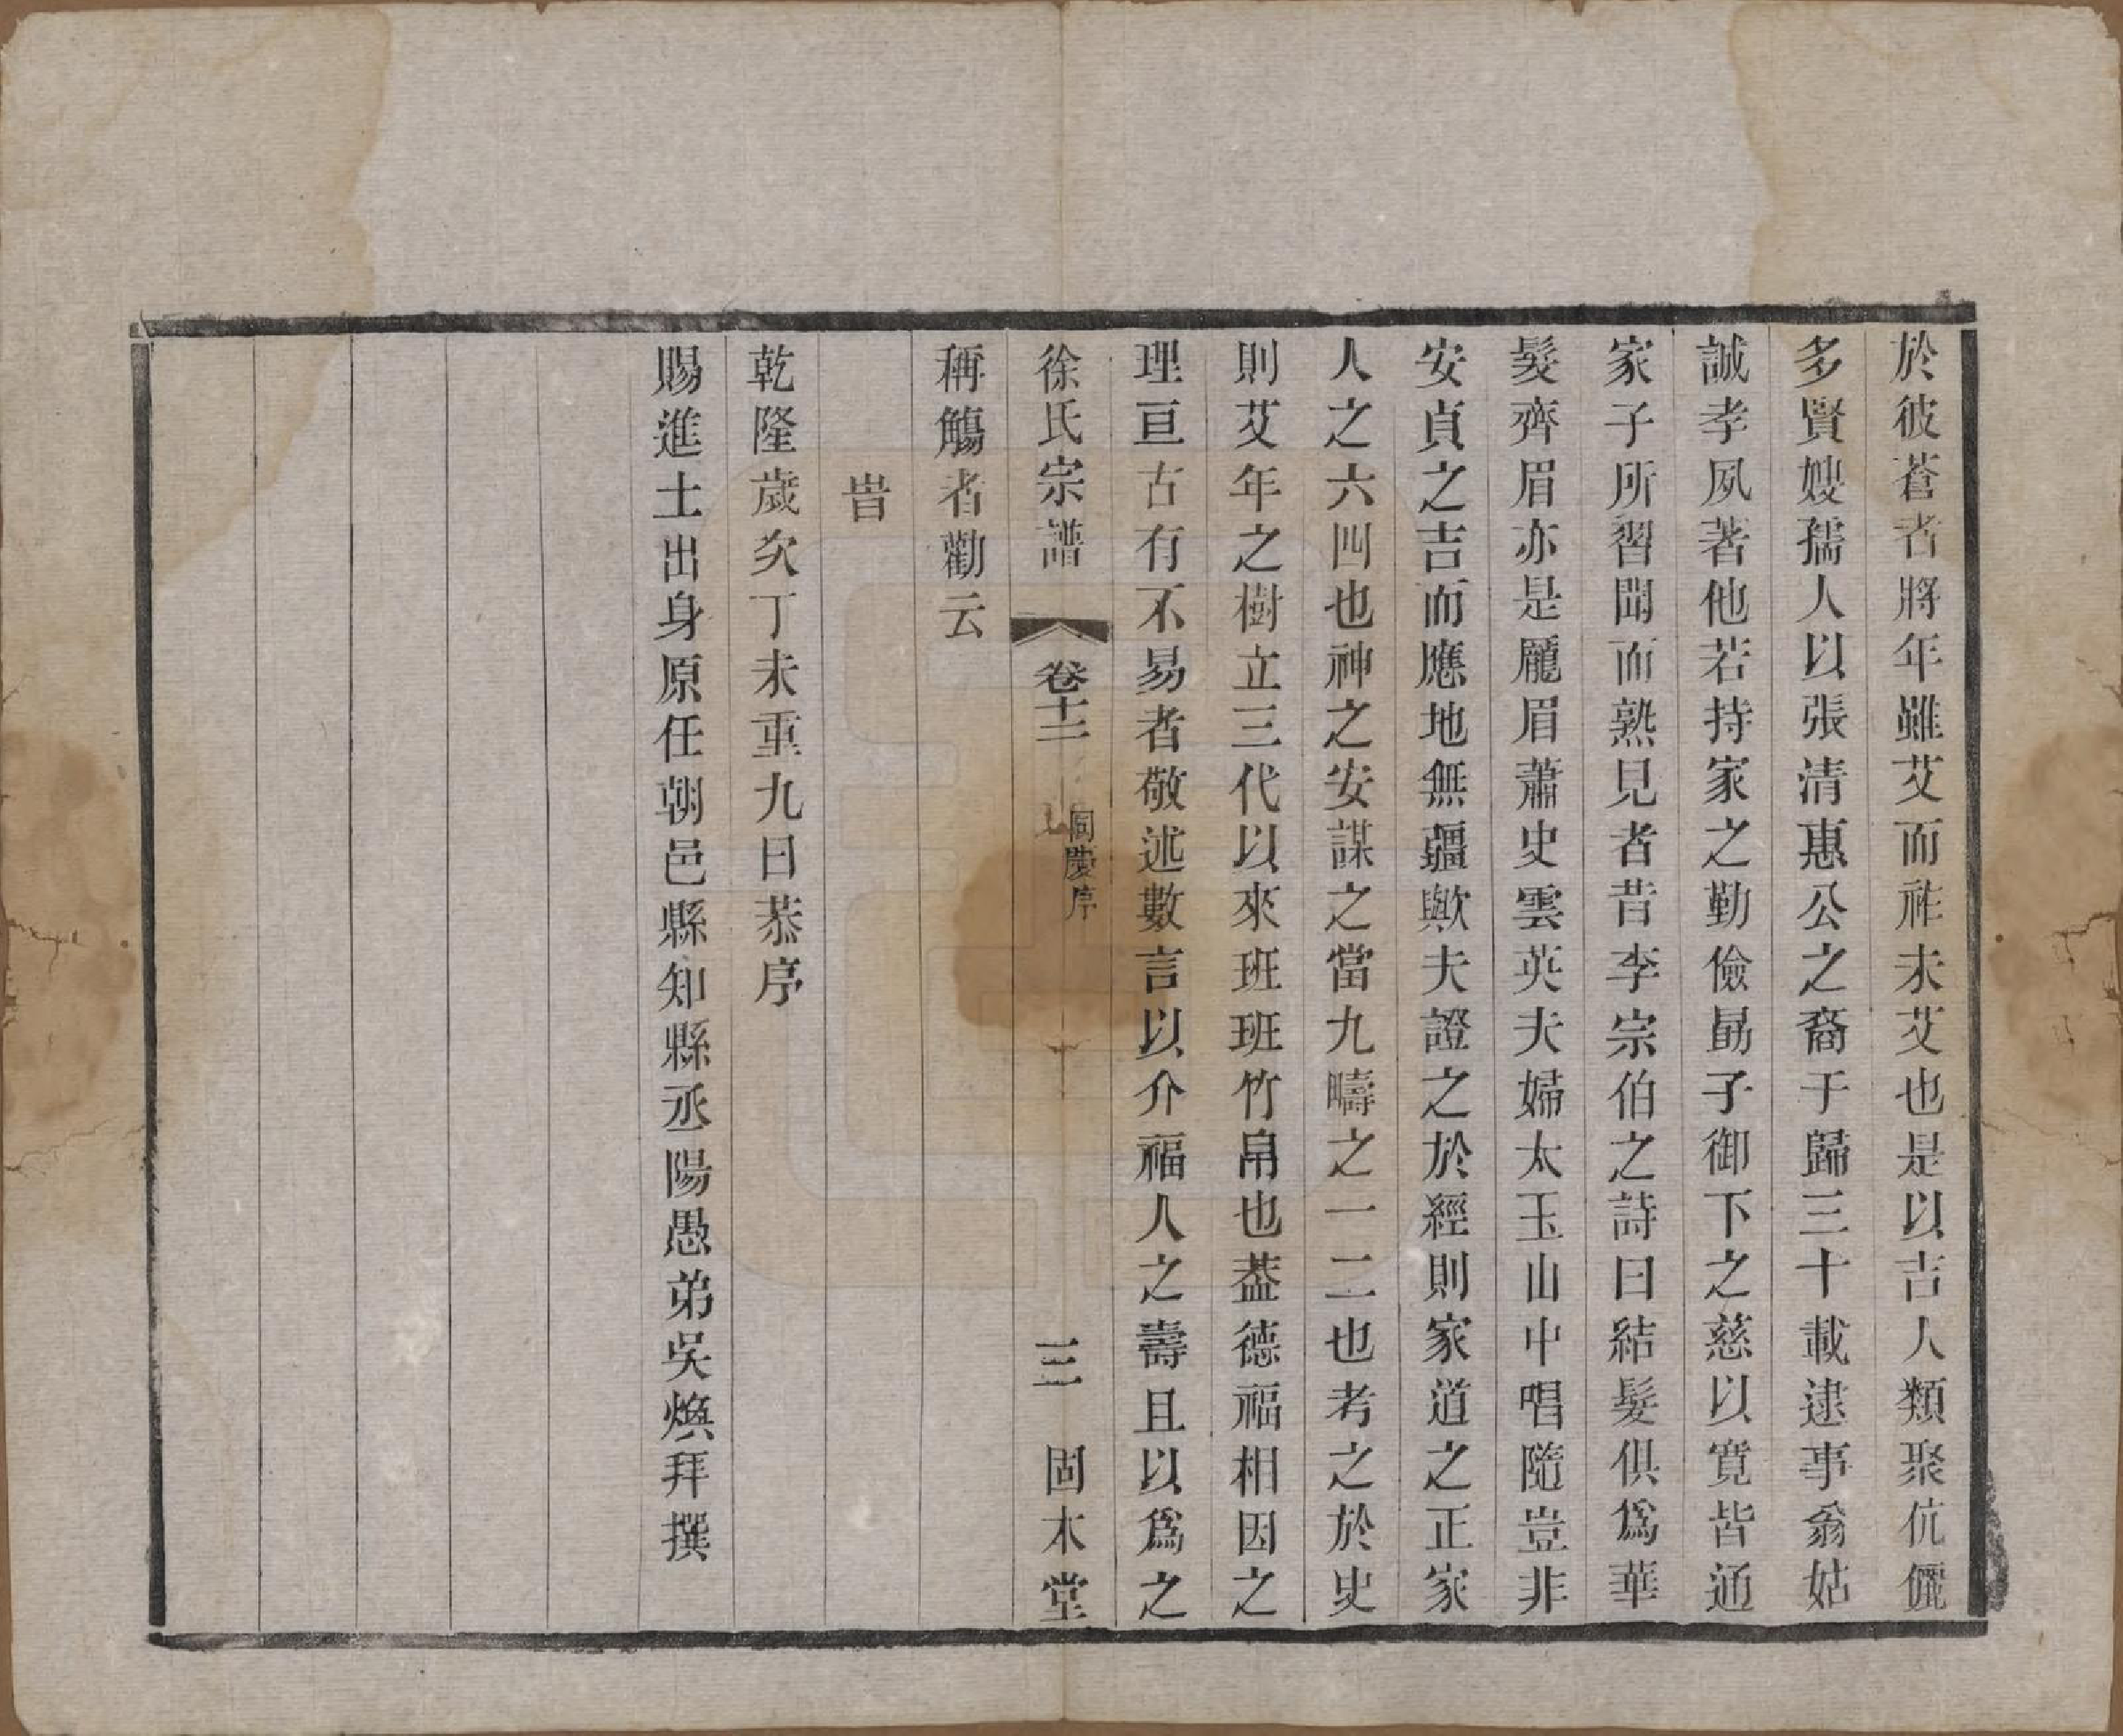 於彼蒼者將年雖艾而祚未艾也是以吉人類聚伉儷
多賢嫂孺人以張清惠公之裔于歸三十載逮事翁姑
誠孝夙著他若持家之勤儉勗子御下之慈以寬皆通
家子所習聞而熟見者昔李宗伯之詩曰結髮俱爲華
髮齊眉亦是龎眉蕭史雲英夫婦太玉山中唱隨豈非
安貞之吉而應地無疆歟夫證之於經則家道之正家
人之六四也神之安謀之當九疇之一二也考之於史
則艾年之樹立三代以來班班竹帛也葢德福相因之
理亘古有不易者敬述數言以介福人之壽且以爲之
徐氏宗譜 卷十二 同慶序 三 固木堂
稱觴者勸云
旹
乾隆歲次丁未重九日恭序
賜進士出身原任朝邑縣知縣丞陽愚弟吳煥拜撰